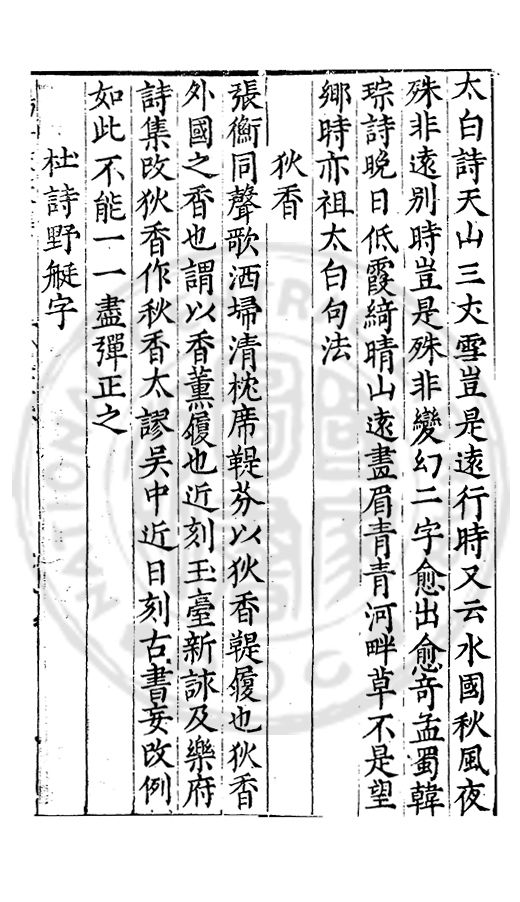 太白詩天山三丈雪豈是遠行時又云水國秋風夜
殊非遠别時豈是殊非變幻二字愈出愈竒孟蜀韓
琮詩晚日低霞綺晴山遠畫眉青青河畔草不是望
鄉時亦祖太白句法
狄香
張衡同聲歌洒埽清枕席鞮芬以狄香鞮履也狄香
外國之香也謂以香薰履也近刻玉臺新詠及樂府
詩集改狄香作秋香太謬吳中近日刻古書妄改例
如此不能一一盡彈正之
杜詩野艇字